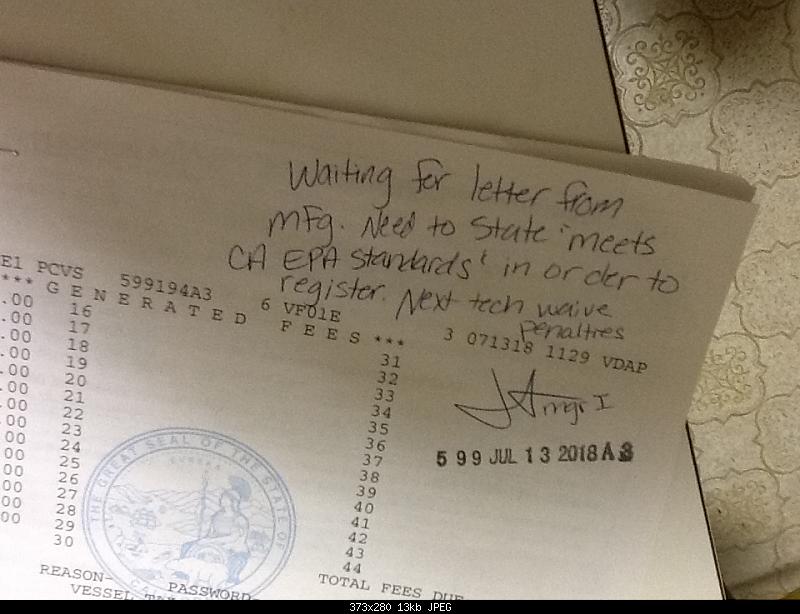 Waiting for letter from
mfg. Need to state "meets
CA EPA standards" in order to
register. Next tech waive
penalties
E1 PCVS 599194A3 6 VF01E 3 071318 1129 VDAP
*** GENERATED FEES ***
.00 16 31
.00 17 32
.00 18 33
.00 19 34
.00 20 35
.00 21 36
.00 22 37
.00 23 38
.00 24 39
.00 25 40
.00 26 41
.00 27 42
.00 28 43
.00 29 44
30
mgr I
599 JUL 13 2018 A3
THE GREAT SEAL OF THE STATE OF
EUREKA
REASON- PASSWORD- TOTAL FEES DUE
VESSEL
373x280 13kb JPEG